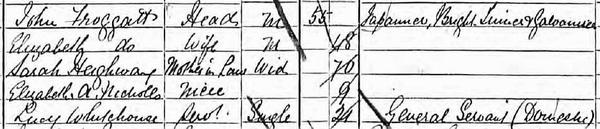 John Froggatt Head M 55 Japanner, Bright Tinner & Galvanizer
Elizabeth do Wife M 48
Sarah Heighway Mother in Law Wid 76
Elizabeth A. Nicholls Niece 9
Lucy Whitehouse Servt. Single 21 General Servant (Domestic)